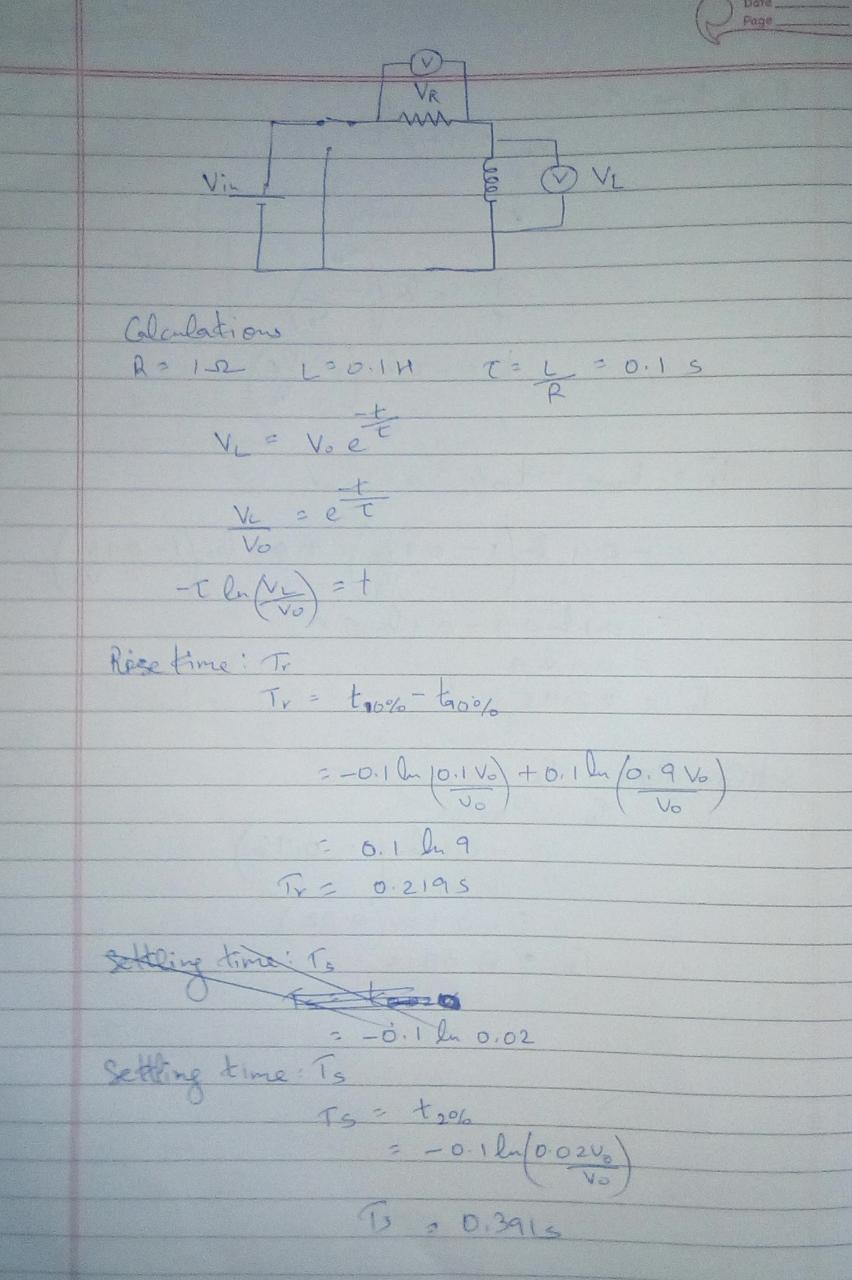 Date
Page
V
VR
Vin
V VL
Calculations
R = 1Ω L = 0.1H τ = L/R = 0.1 s
VL = V0 e^(-t/τ)
VL/V0 = e^(-t/τ)
-τ ln(VL/V0) = t
Rise time: Tr
Tr = t10% - t90%
= -0.1 ln(0.1V0/V0) + 0.1 ln(0.9V0/V0)
= 0.1 ln 9
Tr = 0.219s
Settling time: Ts
= -0.1 ln 0.02
Settling time: Ts
Ts = t2%
= -0.1 ln(0.02V0/V0)
Ts = 0.391s